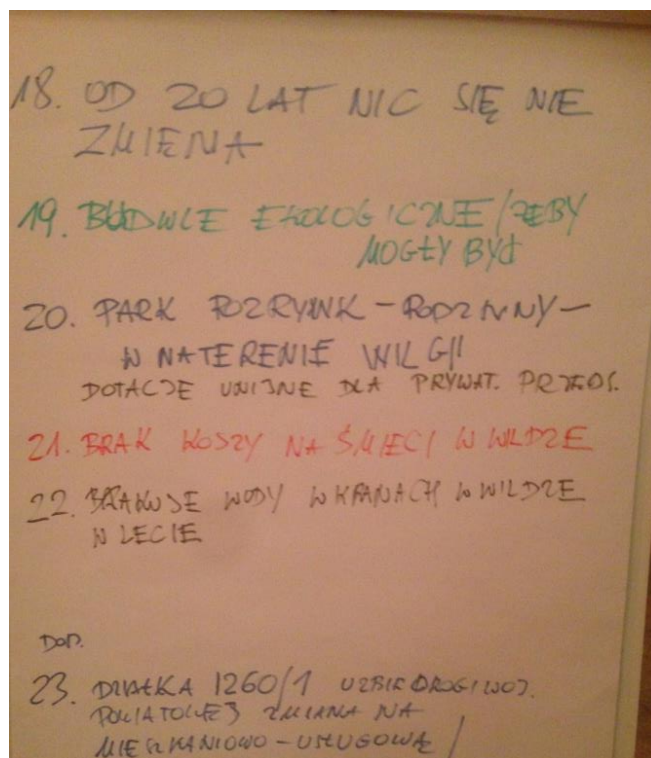 18. OD 20 LAT NIC SIĘ NIE
ZMIENIA
19. BUDOWLE EKOLOGICZNE / ŻEBY
MOGŁY BYĆ
20. PARK ROZRYWK - RODZINNY -
W NA TERENIE WILGII
DOTACJE UNIJNE DLA PRYWAT.
21. BRAK KOSZY NA ŚMIECI W WILDZE
22. BRAKUJE WODY W KRANACH W WILDZE
W LECIE
DOD.
23. DZIAŁKA 1260/1 DROGI WOJ.
POWIATOWEJ ZMIANA NA
MIESZKANIOWO - USŁUGOWĄ /